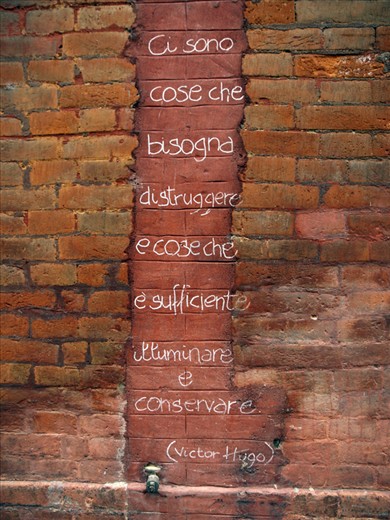 Ci sono
cose che
bisogna
distruggere
e cose che
è sufficiente
illuminare
e
conservare
(Victor Hugo)